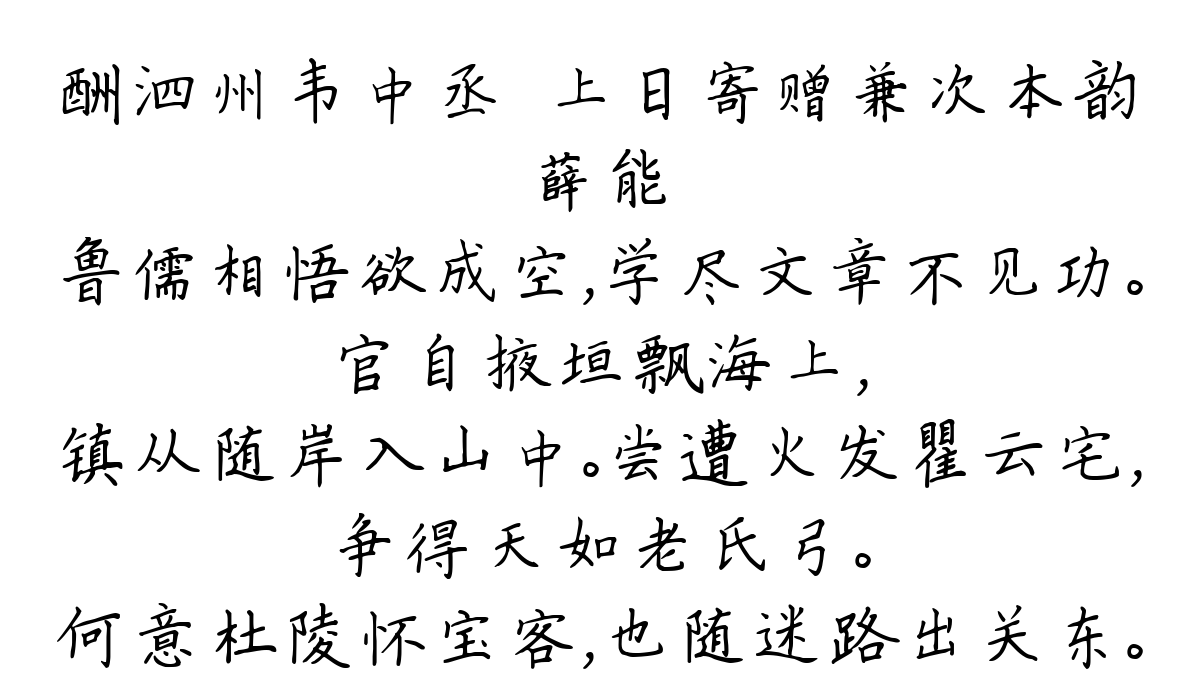 酬泗州韦中丞 上日寄赠兼次本韵
薛能
鲁儒相悟欲成空,学尽文章不见功。
官自掖垣飘海上,
镇从随岸入山中。尝遭火发瞿云宅,
争得天如老氏弓。
何意杜陵怀宝客,也随迷路出关东。